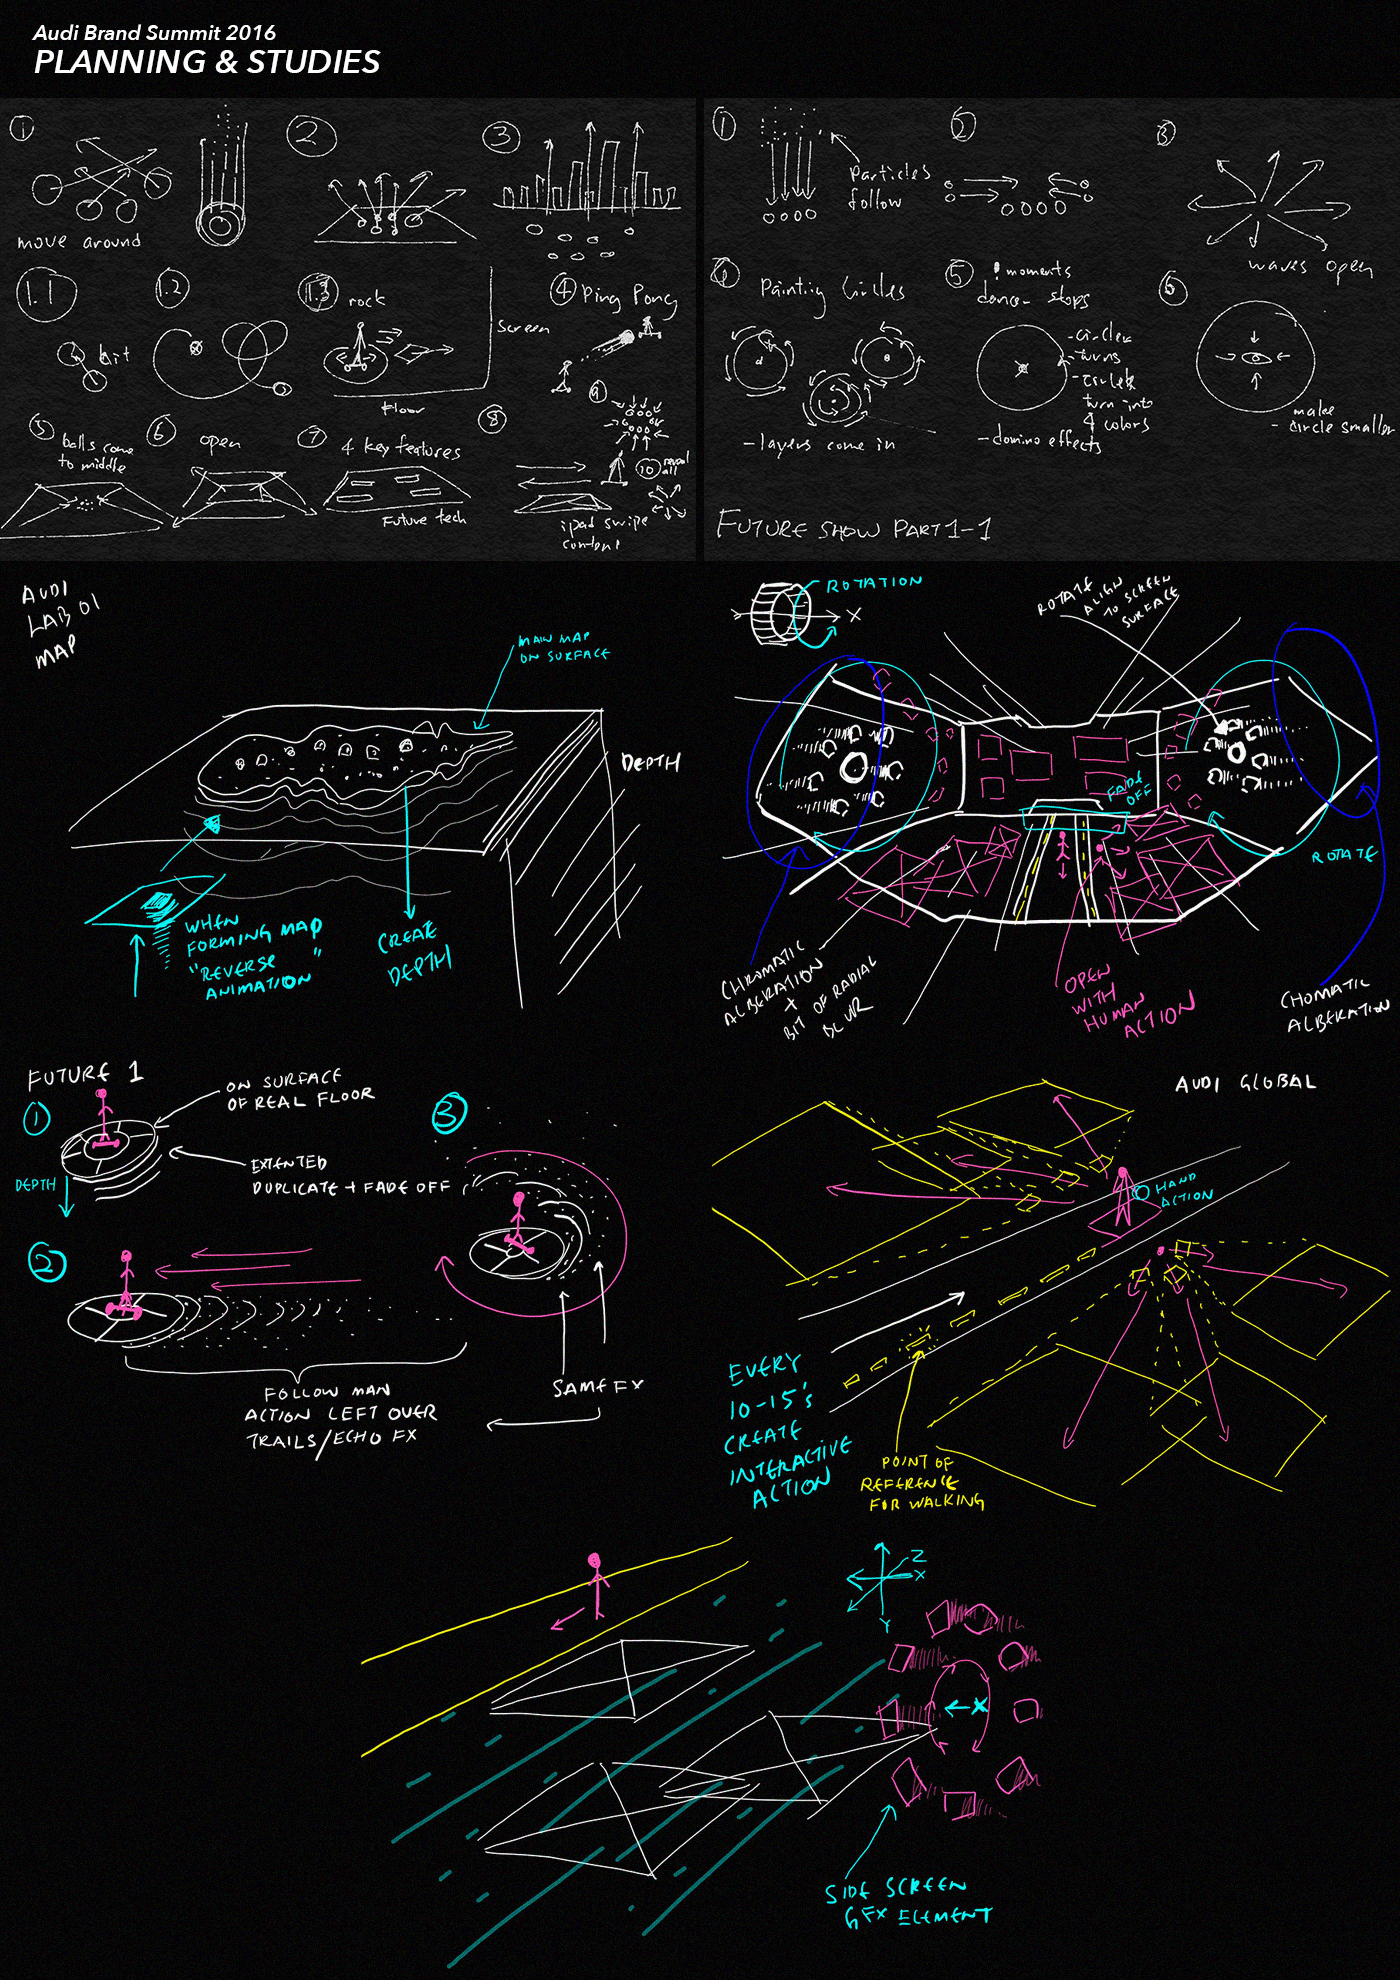 Audi Brand Summit 2016
PLANNING & STUDIES
1
2
3
move around
1.1
hit
1.2
1.3
rock
Screen
Floor
4
Ping Pong
5
balls come
to middle
6
open
7
4 key features
Future tech
8
ipad swipe
content
9
10
reveal
all
1
Particles
follow
2
3
waves open
4
Painting Circles
- layers come in
5
moments
dancer stops
- circles
- turns
- circles
turn into
4 colors
- domino effects
6
make
- circle smaller
FUTURE SHOW PART 1-1
AUDI
LAB 01
MAP
MAIN MAP
ON SURFACE
DEPTH
WHEN
FORMING MAP
"REVERSE
ANIMATION"
CREATE
DEPTH
ROTATION
X
ROTATE
ALIGN
TO SCREEN
SURFACE
FADE
OFF
ROTATE
CHROMATIC
ALBERATION
+
BIT OF RADIAL
BLUR
OPEN
WITH
HUMAN
ACTION
CHOMATIC
ALBERATION
FUTURE 1
1
ON SURFACE
OF REAL FLOOR
EXTENTED
DUPLICATE + FADE OFF
DEPTH
2
FOLLOW MAN
ACTION LEFT OVER
TRAILS/ECHO FX
3
SAME FX
AUDI GLOBAL
HAND
ACTION
EVERY
10-15's
CREATE
INTERACTIVE
ACTION
POINT OF
REFERENCE
FOR WALKING
Z
X
Y
X
SIDE SCREEN
GFX ELEMENT